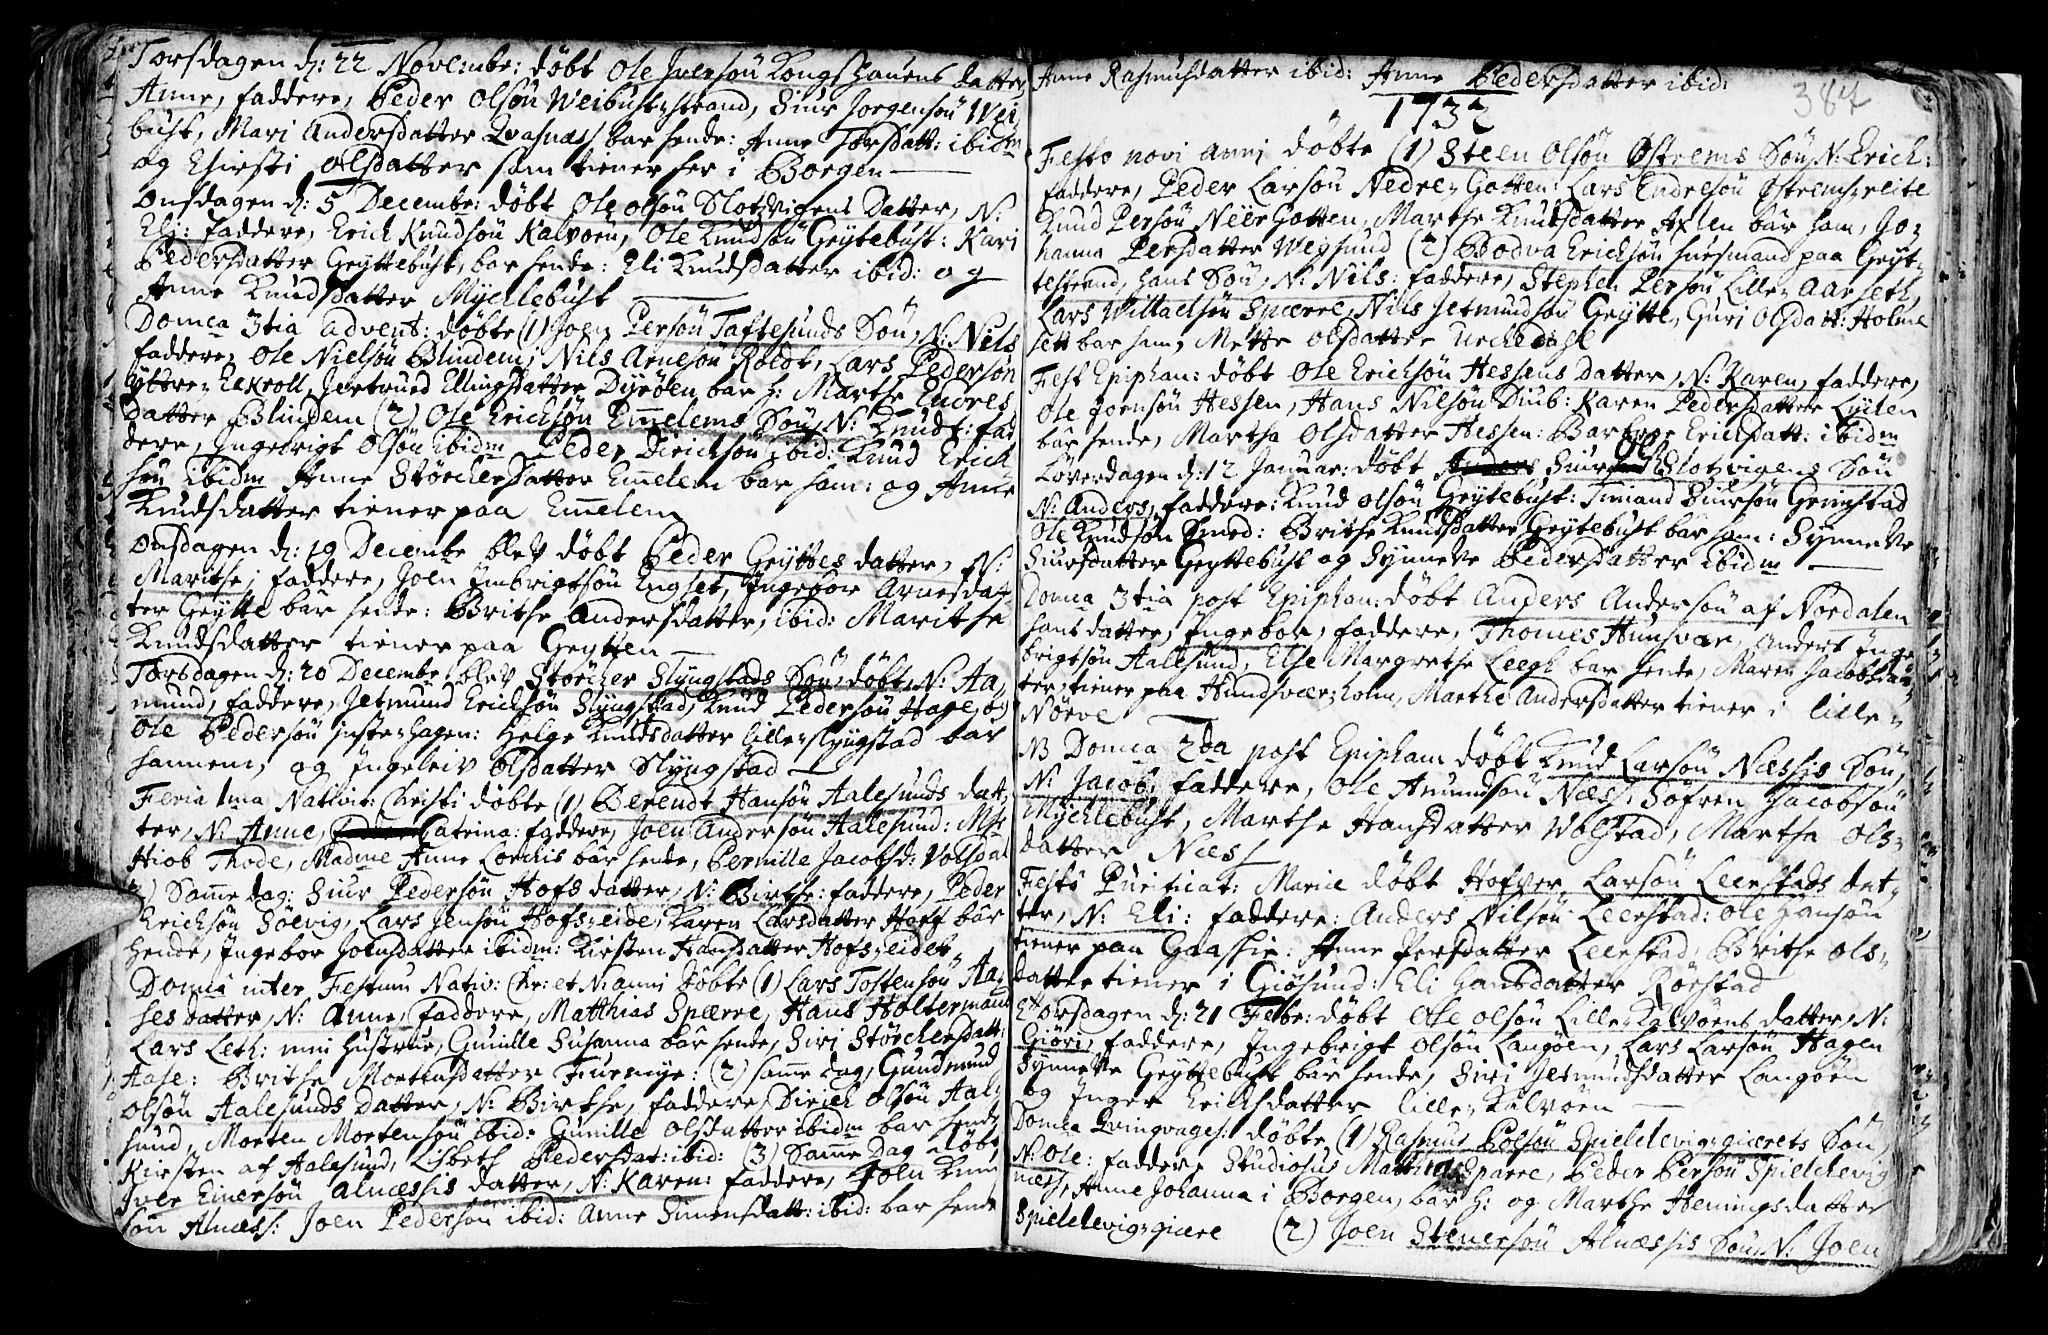 Torsdagen d: 22 Novembr: döbt Ole Iversön Kongshauens datter
Anne, faddere, Peder Olsön Weibust-strand, Siur Jorgensön Wei-
bust, Mari Andersdatter Qvasnæs bar hende: Anne Torsdatt: ibidm
og Chirsti Olsdatter som tiener her i Borgen
Onsdagen d: 5 Decembr: döbt Ole Olsön Slotzvigens Datter, N:
Eli: faddere, Erich Knudsön Kalvoen, Ole Knudsön Greytebust: Kari
Pedersdatter Greyttebust, bar hende: Eli Knudsdatter ibid: og
Anne Knudsdatter Myclebust
Domca 3tia Advent: döbte (1) Joen Persön Taftesunds Sön, N: Nils
faddere, Ole Nielsön Blindem, Nils Arnesön Roldt, Lars Pedersön
Yttre-Eekroll, Jertrued Ellingsdatter Dyröen bar h: Marthe Endres
datter Blindem (2) Ole Ericksön Emelems Sön, N: Knudt: fad
dere, Ingebrigt Olsön ibidm Peder Dirichsön ibid: Knud Erich
sön ibidm Anne Störchersdatter Emelem bar ham: og Anne
Knudsdatter tiener paa Emelem
Onsdagen d: 19 Decembr blev döbt Peder Greyttes datter, N:
Marithe, faddere, Joen Imbrigtsön Engset, Ingebor Arnesdat
ter Greytte bar hende: Brithe Andersdatter, ibid: Marithe
Knudsdatter tiener paa Greytten
Torsdagen d: 20 Decembr blev Störcher Slyngstads Sön döbt, N: Aa-
mund, faddere, Jetmund Ericksön Slyngstad, Knud Pedersön Hage, og
Ole Pedersön ibid: Helge Knudsdatter lille-Slyngstad bar
hannem, og Ingeleiv Olsdatter Slyngstad
Feria 1ma Nativit: Christi döbte (1) Berendt Hansön Aalesunds dat-
ter, N: Anne, Catrina: faddere, Joen Andersön Aalesund: Msr
Hiob Thode, Madme Anne Lorchis bar hende, Pernille Jacobsd: Volsdal
(2) Same dag: Siur Pedersön Hofs datter, N: Birthe: faddere, Peder
Ericksön Soevig, Lars Jensön Hofs-eide, Karen Larsdatter Hoff bar
hende, Ingebor Joensdatter ibidm: Kirsten Hansdatter Hofs-eidet
Domca inter Festum Nativ: Chr: et N: anni döbte (1) Lars Tostensön Aa-
ses datter, N: Anne, faddere, Matthias Spærre, Hans Holtermann
Lars Leth: min hustrue, Gunille Susanna bar hende, Siri Störchersdatt:
Aase: Brithe Mortensdatter Furmye: (2) same dag, Gundmund
Olsön Aalesunds Datter, N: Birthe, faddere, Dirich Olsön Aale-
sund, Morten Mortensön ibid: Gunille Olsdatter ibidm bar hende
Kirsten af Aalesund, Lisbeth Pedersdat: ibid: (3) Same Dag döbt
Iver Einersön Alnæssis datter, N: Karen: faddere, Joen Knud
sön Alnæss: Joen Pedersön ibid: Anne Simensdatt: ibid: bar hende
Anne Rasmusdatter ibid: Anne Pedersdatter ibid:
384
1732
Festo novi anni döbte (1) Steen Olsön Østrems Sön N: Erich:
faddere, Peder Larsön Nedre-Gatten: Lars Endresön Østrems-reite
Knud Persön Neer Gotten, Marthe Knudsdatter Axlen bar ham, Jo-
hanna Persdatter Wegsund (2) Bodva Ericksön huesmand paa Greyt-
testrand, hans Sön, N: Nils: faddere, Stephen Persön Lille-Aarseth,
Lars Willadsön Spærre, Nils Jetmundsön Greytte, Guri Olsdatt: Holme
sett bar ham, Mette Olsdatter Urchedahl
Fest Epiphan: döbt Ole Ericksön Hessens datter, N: Karen, faddere,
Ole Joensön Hessen, Hans Nilsön Diub: Karen Pedersdatter Lyten
bar hende, Martha Olsdatter Hessen: Barbroe Ericksdatt: ibidm
Löverdagen d: 12 Januar: döbt Siur Slotzvigens Sön
N: Anders, faddere: Knud Olsön Greytebust: Timand Siursön Grimstad
Ole Knudsön Smed: Brithe Knudsdatter Greytebust bar ham: Synneve
Siursdatter Greyttebust og Synneve Pedersdatter ibidm
Domca 3tia post Epiphan: döbt Anders Andersön af Nordalen
hans datter, Ingebor, faddere, Thomes Hunsvær, Anders Inge
brigtsön Aalesund, Else Margrethe Leegh bar hende, Maren Jacobsdat
ter, tiener paa Hundsvær-holm, Marthe Andersdatter tiener i lille-
Nörve
NB Domca 2da post Epiphan döbt Knud Larsön Næssis Sön,
N: Jacob, faddere, Ole Amundsön Næss: Söfren Jacobsön
Mychlebust, Marthe Hansdatter Wolstad, Martha Ols-
datter Næss
Festo Purificat: Mariæ döbt Hofver Larsön Leerstads dat-
ter, N: Eli: faddere: Anders Nilsön Leerstad: Ole Hansön
tiener paa Gaashie: Anne Persdatter Leerstad, Brithe Ols-
datter tiener i Giösund: Eli Hansdatter Rörstad
Torsdagen d: 21 Febr: döbt Ole Olsön Lille-Kalvöens datter, N:
Giöri, faddere, Ingebrigt Olsön Langöen, Lars Larsön Hagen
Synneve Greyttebust bar hende, Siri Jetmundsdatter Langöen
og Inger Ericksdatter lille-Kalvöen
Domca Qvinqvages: döbte (1) Rasmus Polsön Spieldevig-giærets Sön
N: Ole: faddere Studiosus Matthias Sparre, Peder Persön Spieldevig
næss, Anne Johanna i Borgen, bar h: og Marthe Heningsdatter
Spieldevig-giære (2) Joen Stenersön Alnæssis Sön, N: Joen